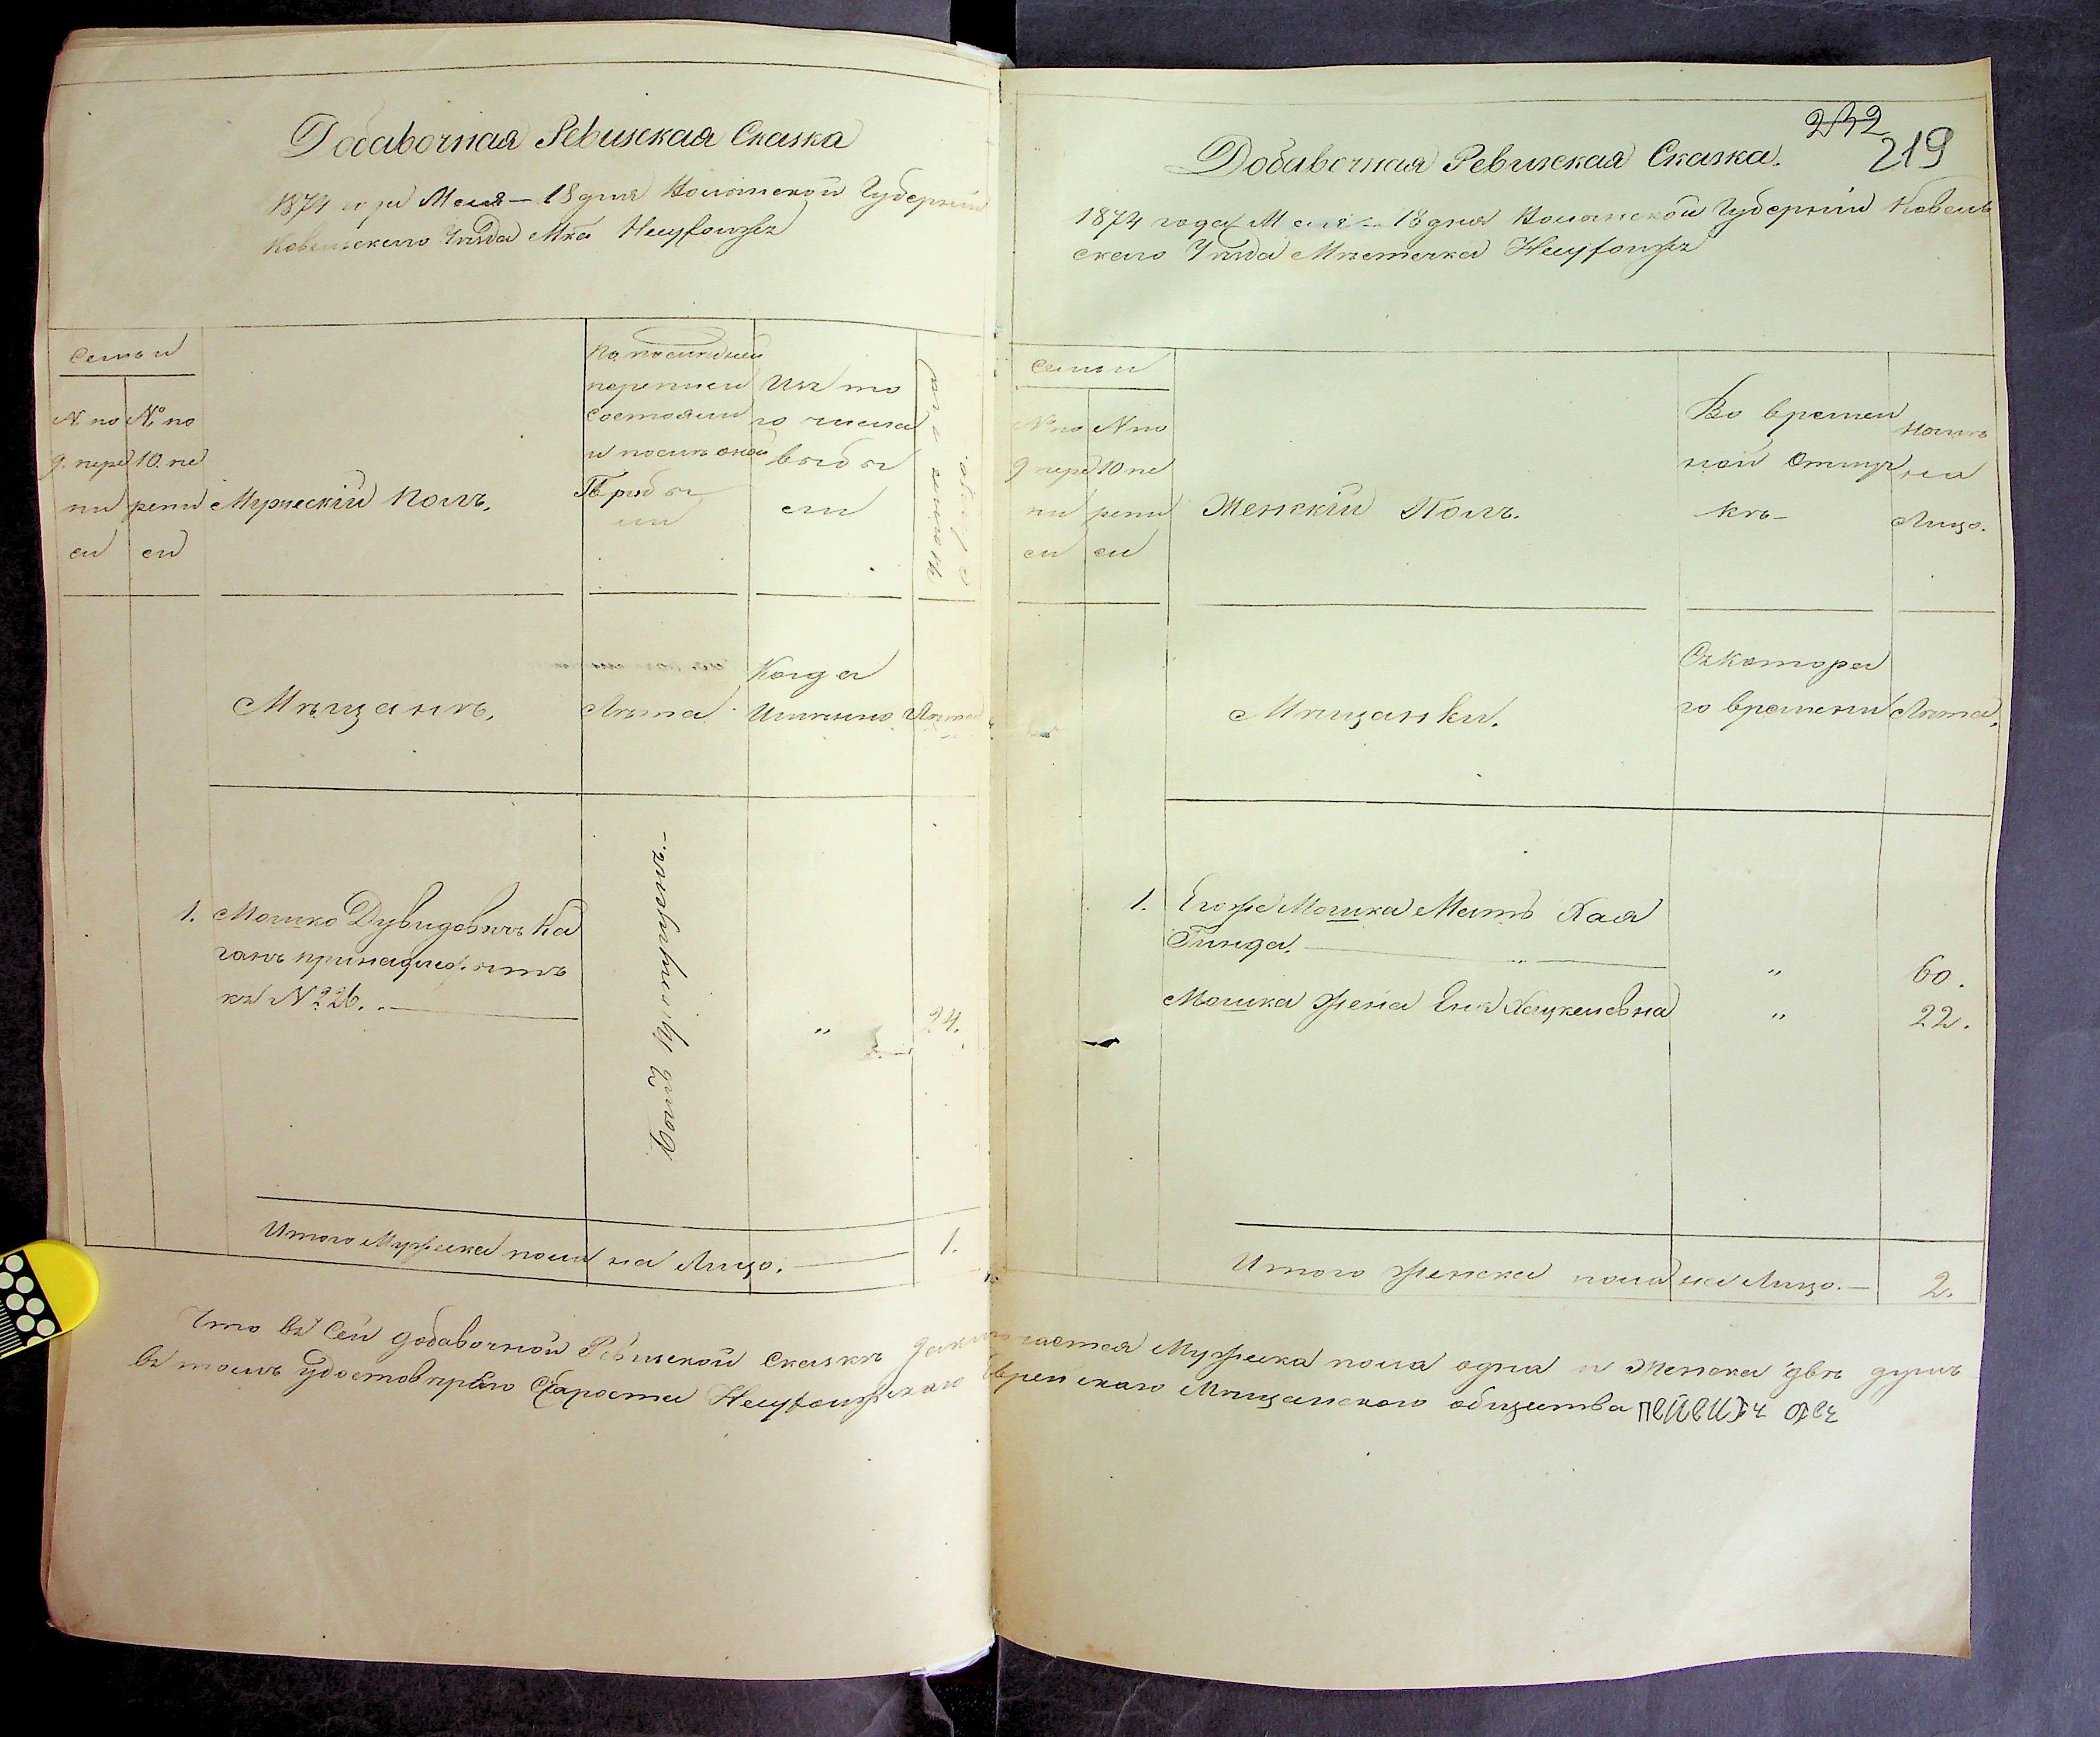 Добавочная Ревизская Сказка
1874 года Мая – 18 дня Волынской Губернии
Ковельскаго Уѣзда Мка Несухоижъ
Семьи
№ по 9. переписи
№ по 10. переписи
Мужескій Полъ.
По послѣдней переписи состояли и послѣ оной Прибыли
Изъ того числа выбыли
Нынѣ на Лицо
Мѣщанъ.
Лѣта
Когда Именно
Лѣта
1. Мошко Дувидовичъ Ка
ганъ принадлежитъ
къ № 226. —
Былъ пропущенъ. –
"
24.
Итого Мужеска пола на Лицо. — 1.
232
219
Добавочная Ревизская Сказка.
1874 года Мая – 18 дня Волынской Губерніи Ковель
скаго Уѣзда Мѣстечка Несухоижъ
Семьи
№ по 9 переписи
№ по 10 переписи
Женскій Полъ.
Во временной Отлучкѣ –
Нынѣ на Лицо.
Мѣщанки.
Съ котораго времени
Лѣта.
1. Егоже Мошка Мать Хая
Гинда. — " 60.
Мошка жена Еня Хацкелевна " 22.
Итого женска пола на Лицо. — 2.
Что въ сей добавочной Ревизской Сказкѣ заключается Мужеска пола одна и Женска двѣ душъ
въ томъ удостовѣряю Староста Несухоижскаго Еврейскаго Мѣщанскаго общества